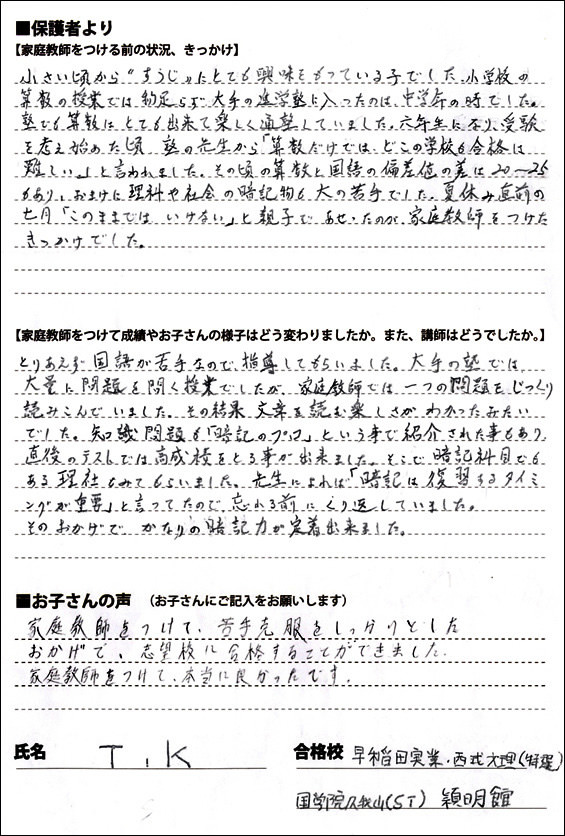 ■保護者より
【家庭教師をつける前の状況、きっかけ】
小さい頃から"すうじ"にとても興味をもっている子でした。小学校の
算数の授業では物足らず大手の進学塾に入ったのは、中学年の時でした。
塾でも算数はとても出来て楽しく通塾していました。六年生になり、受験
を考え始めた頃 塾の先生から「算数だけでは、どこの学校も合格は
難しい。」と言われました。その頃の算数と国語の偏差値の差は20〜25
もあり、おまけに理科や社会の暗記物も大の苦手でした。夏休み直前の
七月「このままでは いけない」と親子であせったのが、家庭教師をつけた
きっかけでした。
【家庭教師をつけて成績やお子さんの様子はどう変わりましたか。また、講師はどうでしたか。】
とりあえず 国語が苦手なので、指導してもらいました。大手の塾では
大量に問題を解く授業でしたが、家庭教師では一つの問題をじっくり
読みこんでいました。その結果 文章を読む楽しさが、わかったみたい
でした。知識問題も「暗記のプロ」という事で紹介された事もあり、
直後のテストでは高成績をとる事が出来ました。そこで暗記科目でも
ある 理社もみてもらいました。先生によれば「暗記は復習するタイミ
ングが重要」と言ってたので、忘れる前にくり返していました。
そのおかげで かなりの暗記力が定着出来ました。
■お子さんの声 (お子さんにご記入をお願いします)
家庭教師をつけて、苦手克服をしっかりとした
おかげで、志望校に合格することができました。
家庭教師をつけて、本当に良かったです。
氏名 T.K 合格校 早稲田実業・西武文理(特選)
国学院久我山(ST) 穎明館